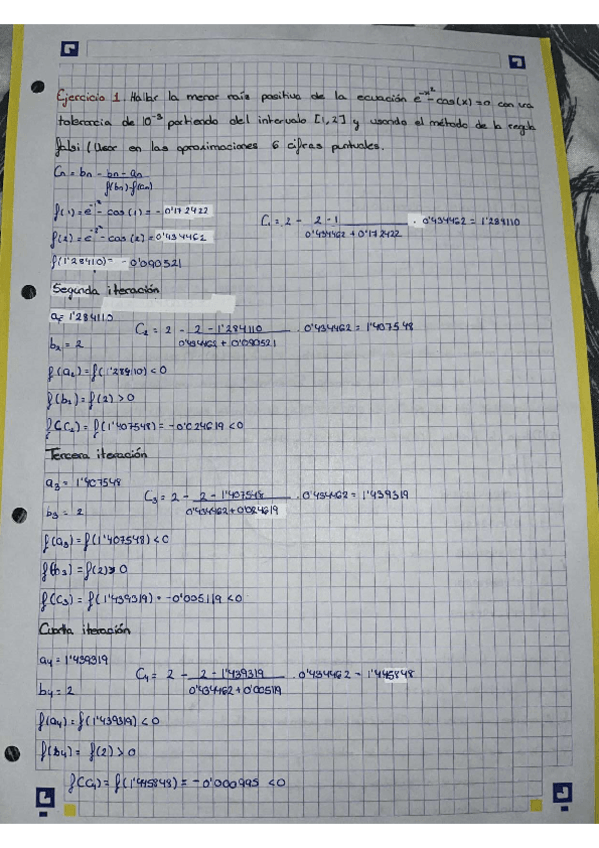 Ejercicio 1. Hallar la menor raíz positiva de la ecuación e^-x² - cos(x) = 0 con una
tolerancia de 10^-3 partiendo del intervalo [1,2] y usando el método de la regula
falsi (Usar en las aproximaciones 6 cifras puntuales.
Cn = bn - bn - an / f(bn) - f(an)
f(1) = e^-1² - cos(1) = -0'172422
C1 = 2 - 2 - 1 / 0'434462 + 0'172422 · 0'434462 = 1'284110
f(2) = e^-2² - cos(2) = 0'434462
f(1'28410) = -0'090521
Segunda iteración
a2 = 1'284110
C2 = 2 - 2 - 1'284110 / 0'434462 + 0'090521 · 0'434462 = 1'407548
b2 = 2
f(a2) = f(1'284110) < 0
f(b2) = f(2) > 0
f(C2) = f(1'407548) = -0'024619 < 0
Tercera iteración
a3 = 1'407548
C3 = 2 - 2 - 1'407548 / 0'434462 + 0'024619 · 0'434462 = 1'439319
b3 = 2
f(a3) = f(1'407548) < 0
f(b3) = f(2) > 0
f(C3) = f(1'439319) = -0'005119 < 0
Cuarta iteración
a4 = 1'439319
C4 = 2 - 2 - 1'439319 / 0'434462 + 0'00519 · 0'434462 = 1'445848
b4 = 2
f(a4) = f(1'439319) < 0
f(b4) = f(2) > 0
f(C4) = f(1'445848) = -0'000995 < 0